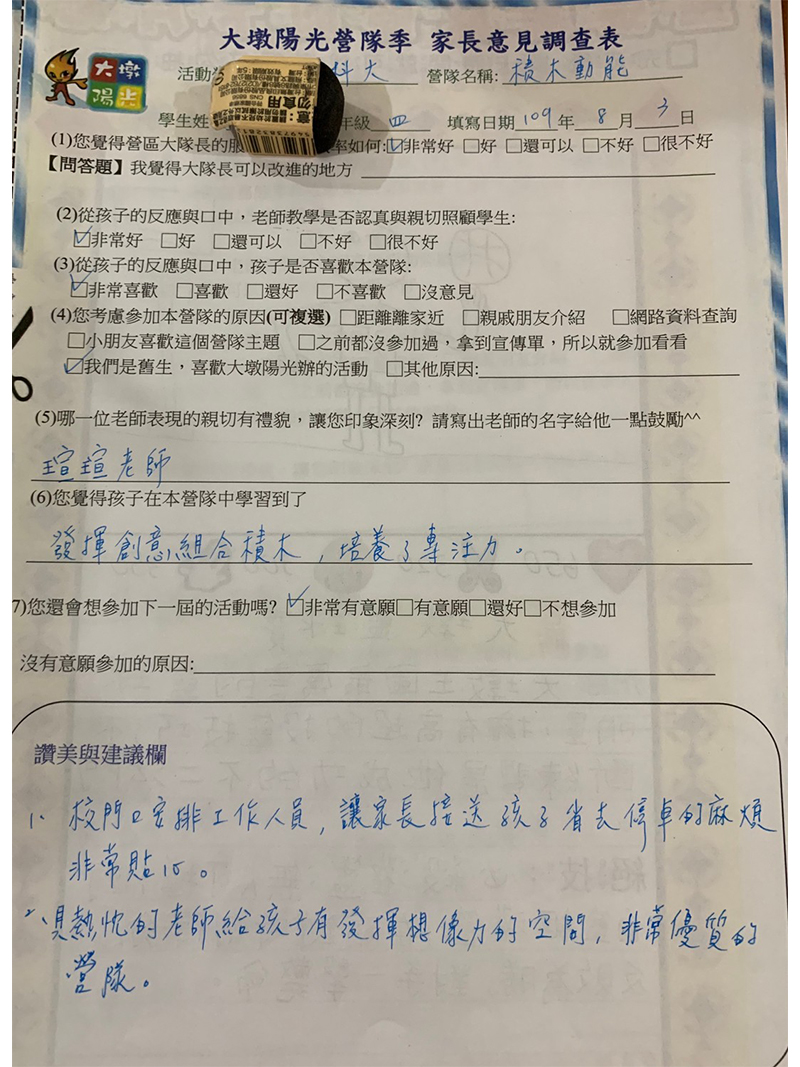 大墩陽光營隊季 家長意見調查表
大墩
陽光
活動 科大 營隊名稱: 積木動能
學生姓 年級 四 填寫日期 109 年 8 月 3 日
(1)您覺得營區大隊長的服 率如何:☑非常好 □好 □還可以 □不好 □很不好
【問答題】我覺得大隊長可以改進的地方
(2)從孩子的反應與口中，老師教學是否認真與親切照顧學生:
☑非常好 □好 □還可以 □不好 □很不好
(3)從孩子的反應與口中，孩子是否喜歡本營隊:
☑非常喜歡 □喜歡 □還好 □不喜歡 □沒意見
(4)您考慮參加本營隊的原因(可複選) □距離離家近 □親戚朋友介紹 □網路資料查詢
□小朋友喜歡這個營隊主題 □之前都沒參加過，拿到宣傳單，所以就參加看看
☑我們是舊生，喜歡大墩陽光辦的活動 □其他原因:
(5)哪一位老師表現的親切有禮貌，讓您印象深刻? 請寫出老師的名字給他一點鼓勵^^
瑄瑄老師
(6)您覺得孩子在本營隊中學習到了
發揮創意組合積木，培養了專注力。
7)您還會想參加下一屆的活動嗎? ☑非常有意願□有意願□還好□不想參加
沒有意願參加的原因:
讚美與建議欄
1、校門口安排工作人員，讓家長接送孩子省去停車的麻煩
非常貼心。
2、具熱忱的老師給孩子有發揮想像力的空間，非常優質的
營隊。